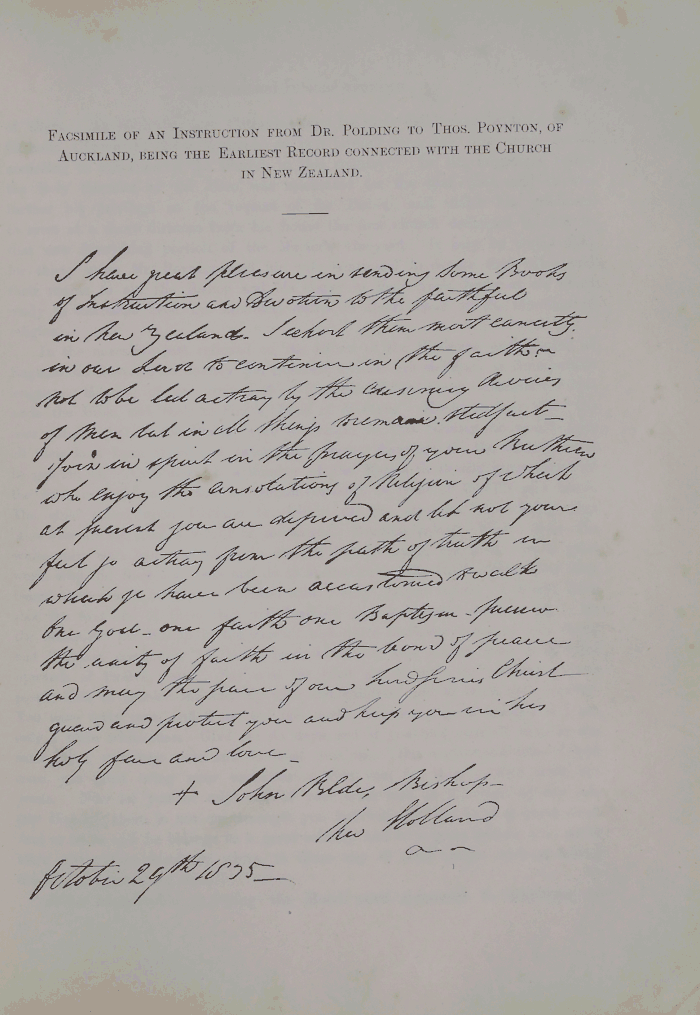 FACSIMILE OF AN INSTRUCTION FROM DR. POLDING TO THOS. POYNTON, OF
AUCKLAND, BEING THE EARLIEST RECORD CONNECTED WITH THE CHURCH
IN NEW ZEALAND.
I have great pleasure in sending some Books
of Instruction and Devotion to the faithful
in New Zealand. I exhort them most earnestly
in our Lord to continue in the faith
not to be led astray by the devices
of Men but in all things to remain stedfast
Join in spirit in the prayers of your Brethren
who enjoy the consolations of Religion of which
at present you are deprived and let not your
feet go astray from the path of truth in
which ye have been accustomed to walk
One God - one faith one Baptism -
the unity of faith in the bond of peace
and may the peace of our Lord Jesus Christ
guard and protect you and keep you in his
holy fear and love -
+ John Bede, Bishop -
New Holland
October 29th 1835 -